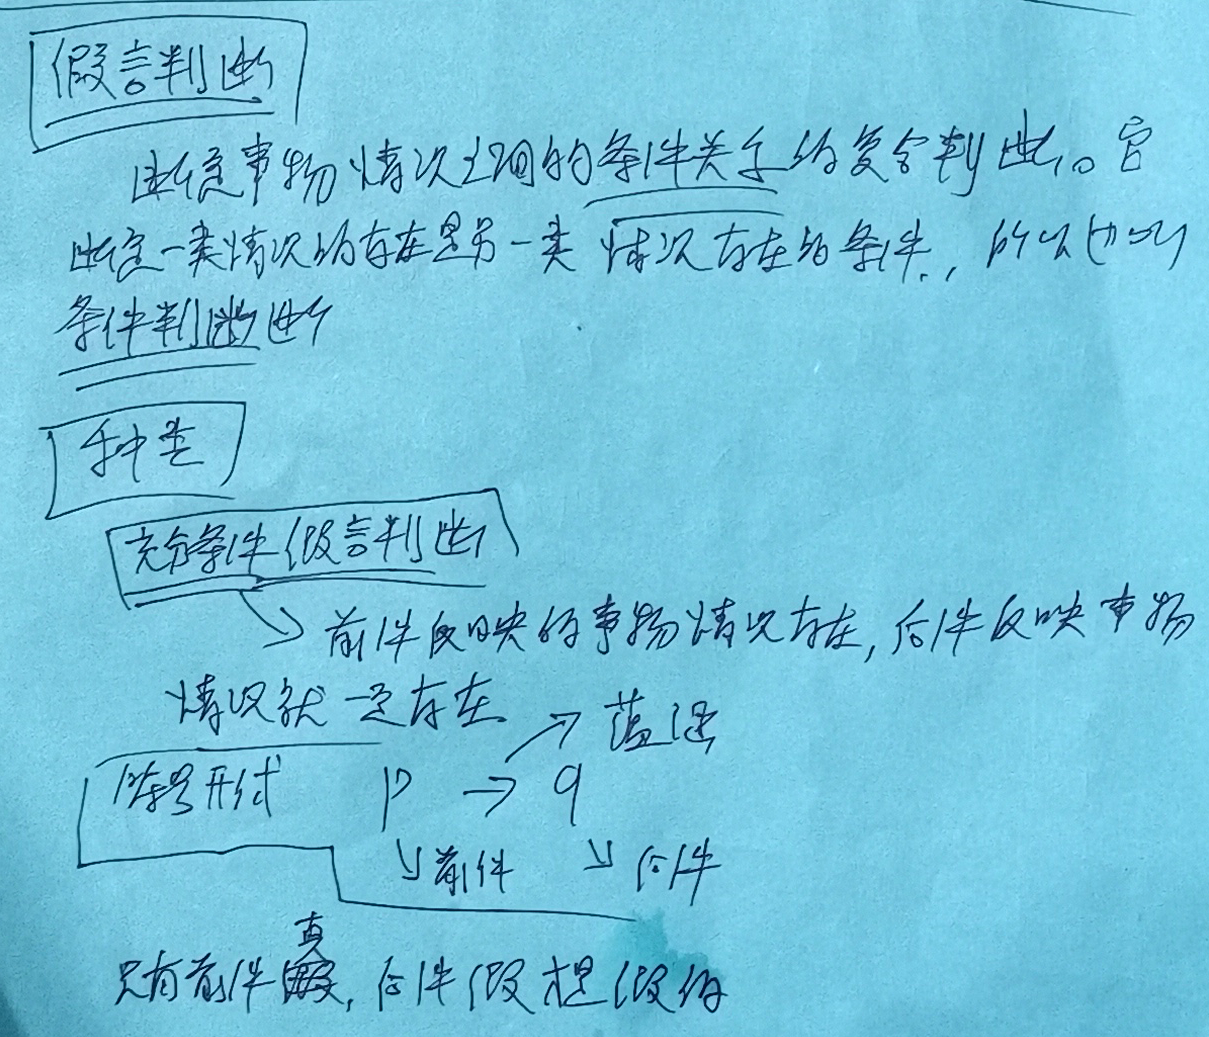 假言判断
断定事物情况之间的条件关系的复合判断。它
断定一类情况的存在是另一类情况存在的条件,所以也叫
条件判断
种类
充分条件假言判断
前件反映的事物情况存在,后件反映事物
情况就一定存在
蕴涵
符号形式 p → q
前件 后件
真
只有前件,后件假才是假的